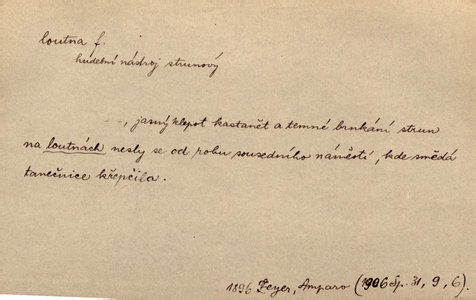 loutna f.
hudební nástroj strunový
, jasný klepot kastanět a temné brnkání strun
na loutnách nesly se od rohu sousedního náměstí, kde smědá
tanečnice křepčila.
1896 Zeyer, Amparo (1906 Sp. 31, 9, 6)